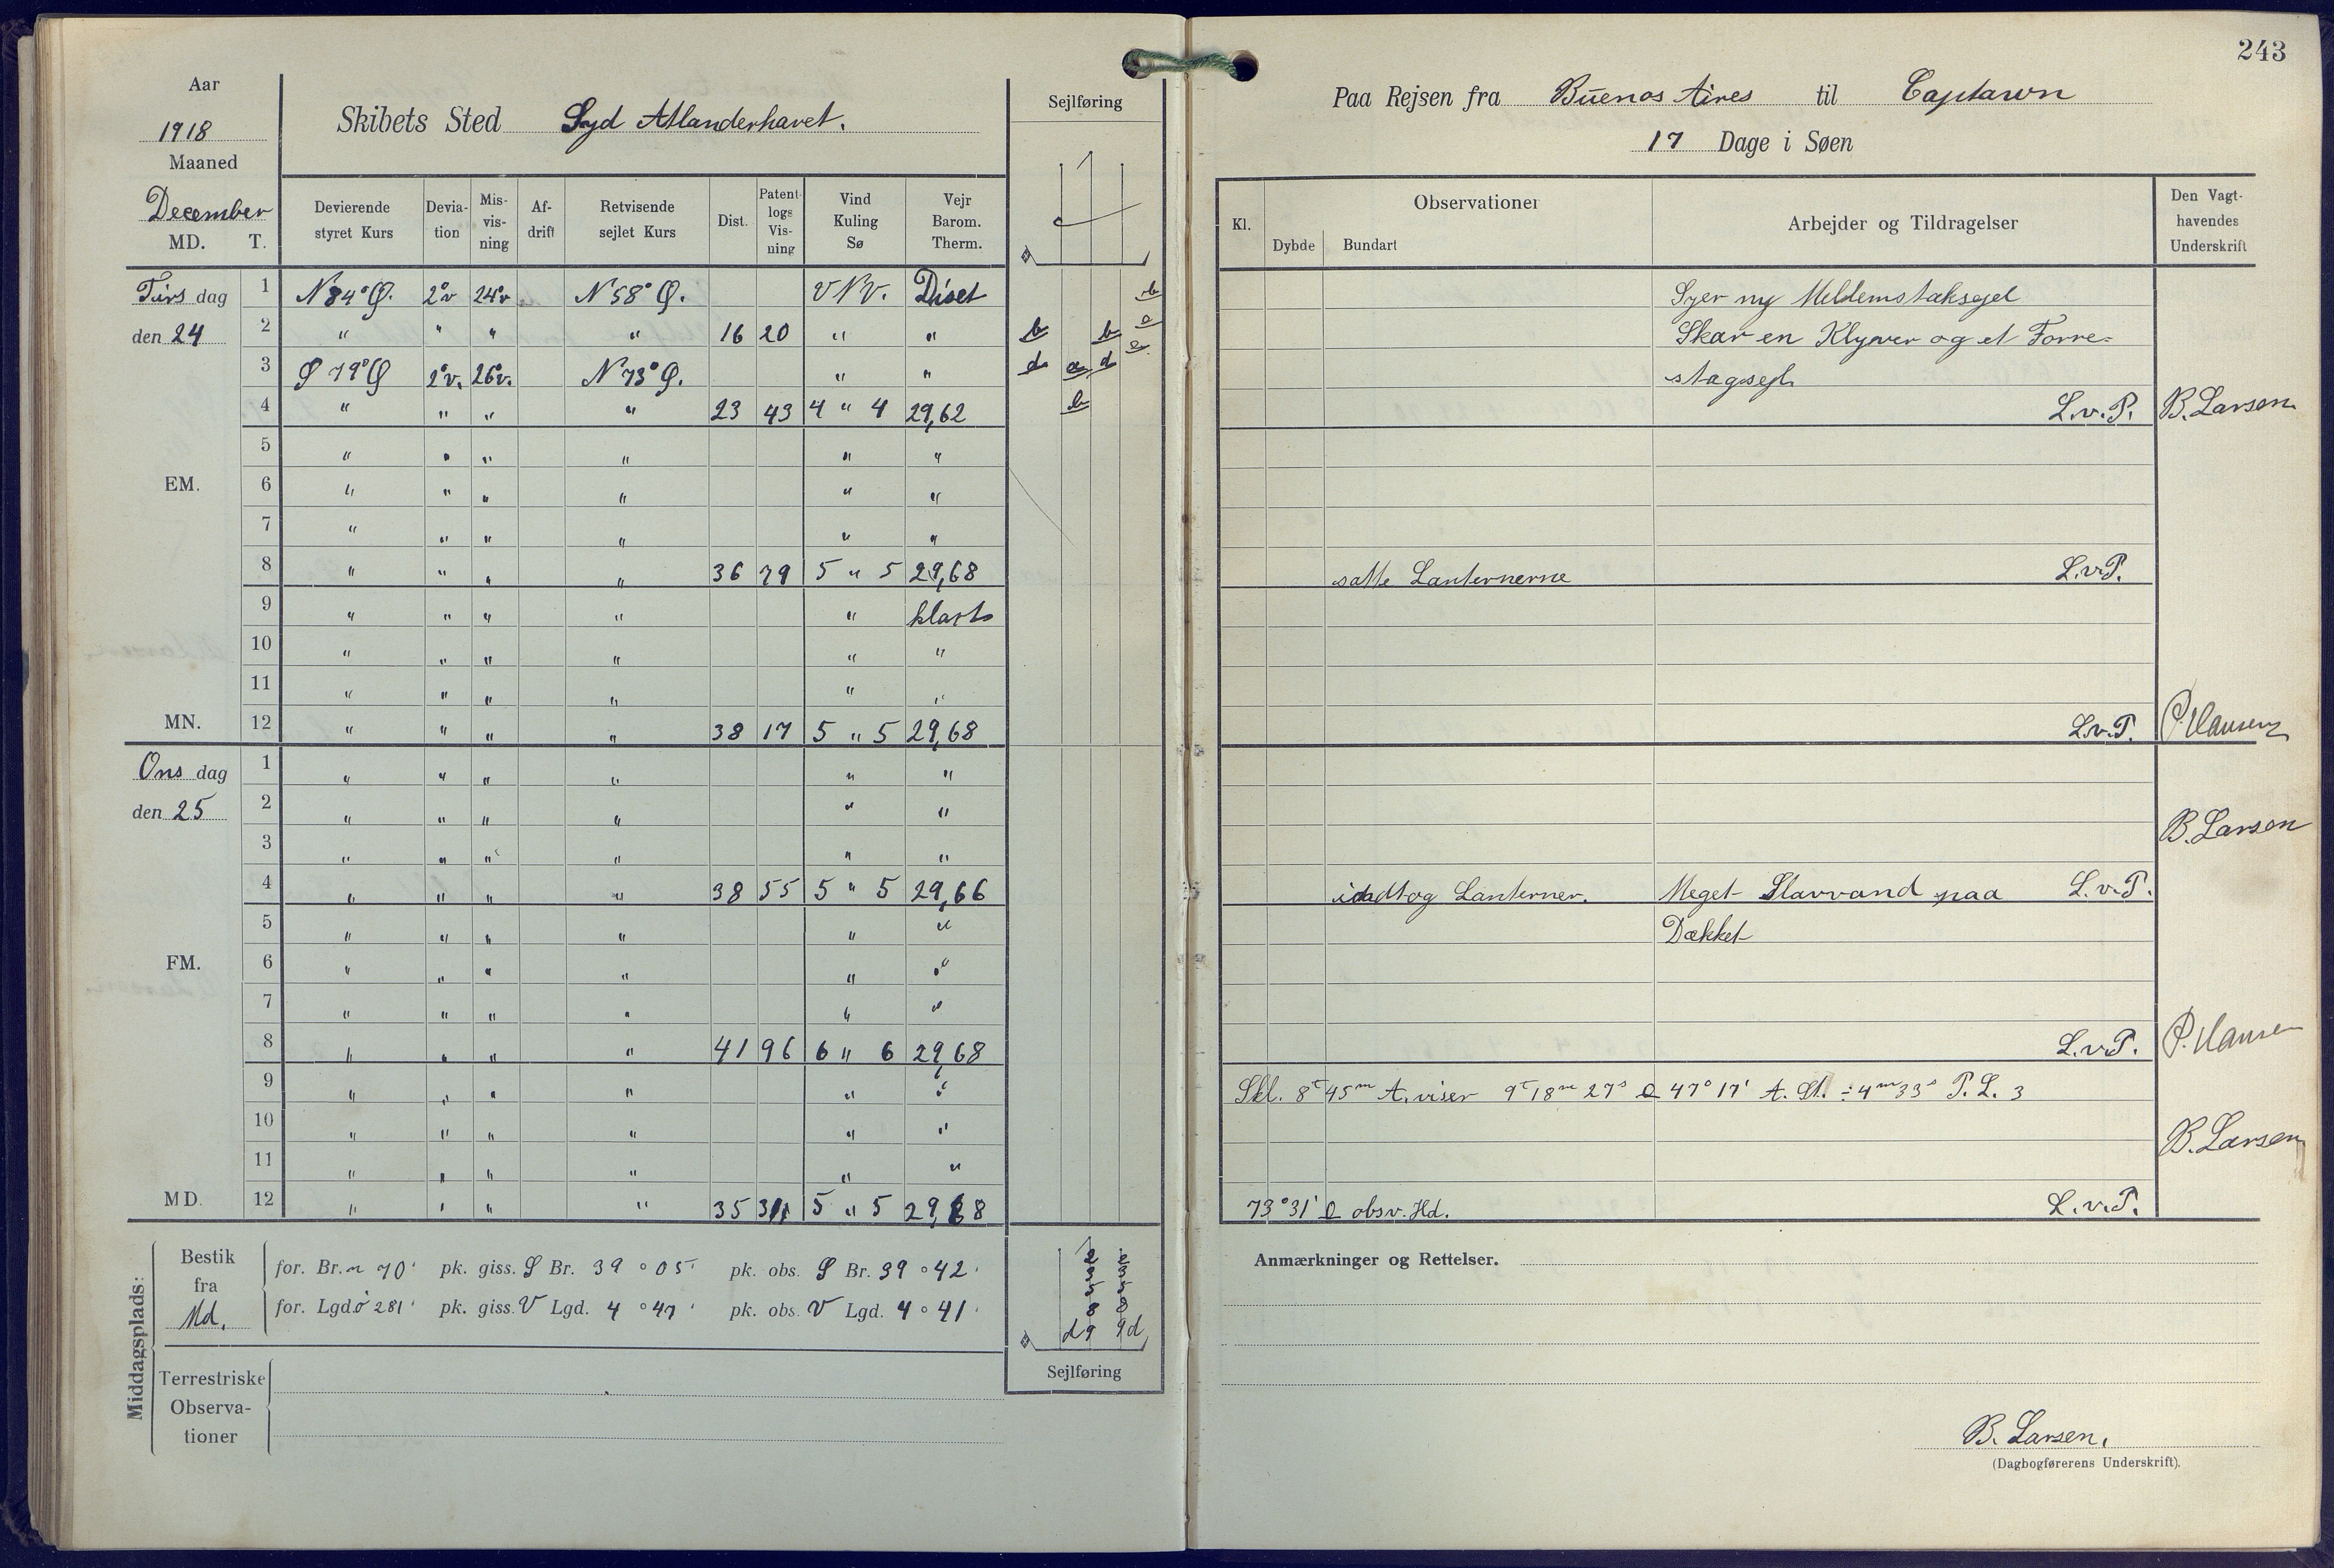 243
Aar
1918
Maaned
December
MD. T.
Skibets Sted Syd Atlanderhavet.
Sejlføring
Paa Rejsen fra Buenos Aires til Captawn
17 Dage i Søen
Devierende styret Kurs
Devia-tion
Mis-vis-ning
Af-drift
Retvisende sejlet Kurs
Dist.
Patent-logs Vis-ning
Vind Kuling Sø
Vejr Barom. Therm.
Kl.
Observationer
Dybde Bundart
Arbejder og Tildragelser
Den Vagt-havendes Underskrift
Tirs dag 1 N 84° Ø. 2°v 24°v. N 58° Ø. VNV. Diset Syer ny Mellemstaksejel
den 24 2 " " " " 16 20 " " Skar en Klyver og et Forre-
3 S 79° Ø 2°v. 26°v. N 73° Ø. " " stagsejl
4 " " " " 23 43 4 " 4 29,62 L.v.P. B. Larsen
5 " " " " " "
EM. 6 " " " " " "
7 " " " " " "
8 " " " " 36 79 5 " 5 29,68 satte Lanternerne L.v.P.
9 " " " " " klart
10 " " " " " "
11 " " " " " "
MN. 12 " " " " 38 17 5 " 5 29,68 L.v.P. P. Hansen
Ons dag 1 " " " " " "
den 25 2 " " " " " " B. Larsen
3 " " " " " "
4 " " " " 38 55 5 " 5 29,66 indtog Lanterner. Meget Slavvand paa L.v.P.
5 " " " " " " Dækket
FM. 6 " " " " " "
7 " " " " " "
8 " " " " 41 96 6 " 6 29,68 L.v.P. P. Hansen
9 " " " " " " Skl. 8t 45m A. viser 9t 18m 27s 47° 17' A. St. ÷ 4m 33s P. L. 3
10 " " " " " " B. Larsen
11 " " " " " "
MD. 12 " " " " 35 31 5 " 5 29,68 73° 31' obsv. Hd. L.v.P.
Middagsplads:
Bestik fra Md.
for. Br. n 70' pk. giss. S Br. 39 ° 05' pk. obs. S Br. 39 ° 42'
for. Lgd ø 281' pk. giss. V Lgd. 4 ° 47' pk. obs. V Lgd. 4 ° 41'
Terrestriske Observa-tioner
Sejlføring
Anmærkninger og Rettelser.
B. Larsen.
(Dagbogførerens Underskrift).